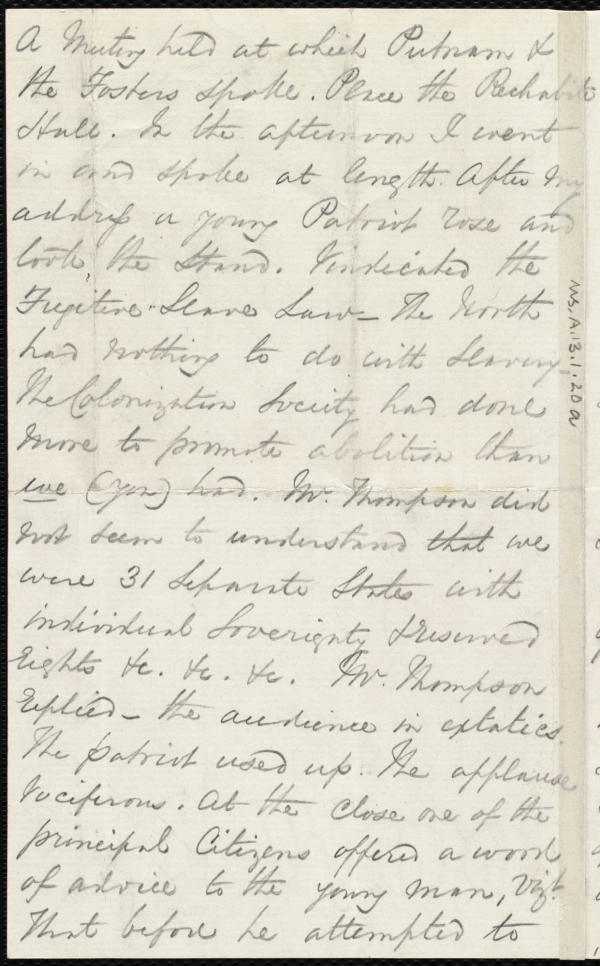 A Meeting held at which Putnam &
the Fosters spoke. Place the Rechabite
Hall. In the afternoon I went
in and spoke at length. After my
address a young Patriot rose and
took the Stand. Vindicated the
Fugitive Slave Law_ The North
had nothing to do with Slavery_
The Colonization Society had done
more to promote abolition than
we (you) had. Mr. Thompson did
not seem to understand that we
were 31 Separate States with
individual Soverignty & reserved
rights &c. &c. &c. Mr. Thompson
replied_ the audience in extatics.
The patriot used up. The applause
Vociferous. At the close one of the
principal Citizens offered a word
of advice to the young man, Vizt.
That before he attempted to
Ms. A. 1.3. 1. 20 a